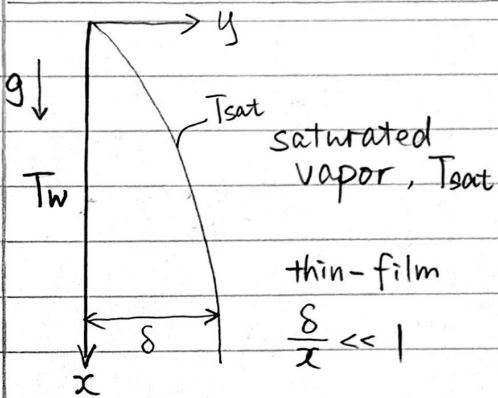 y
g
Tsat
saturated
vapor, Tsat
Tw
thin-film
δ/x << 1
δ
x